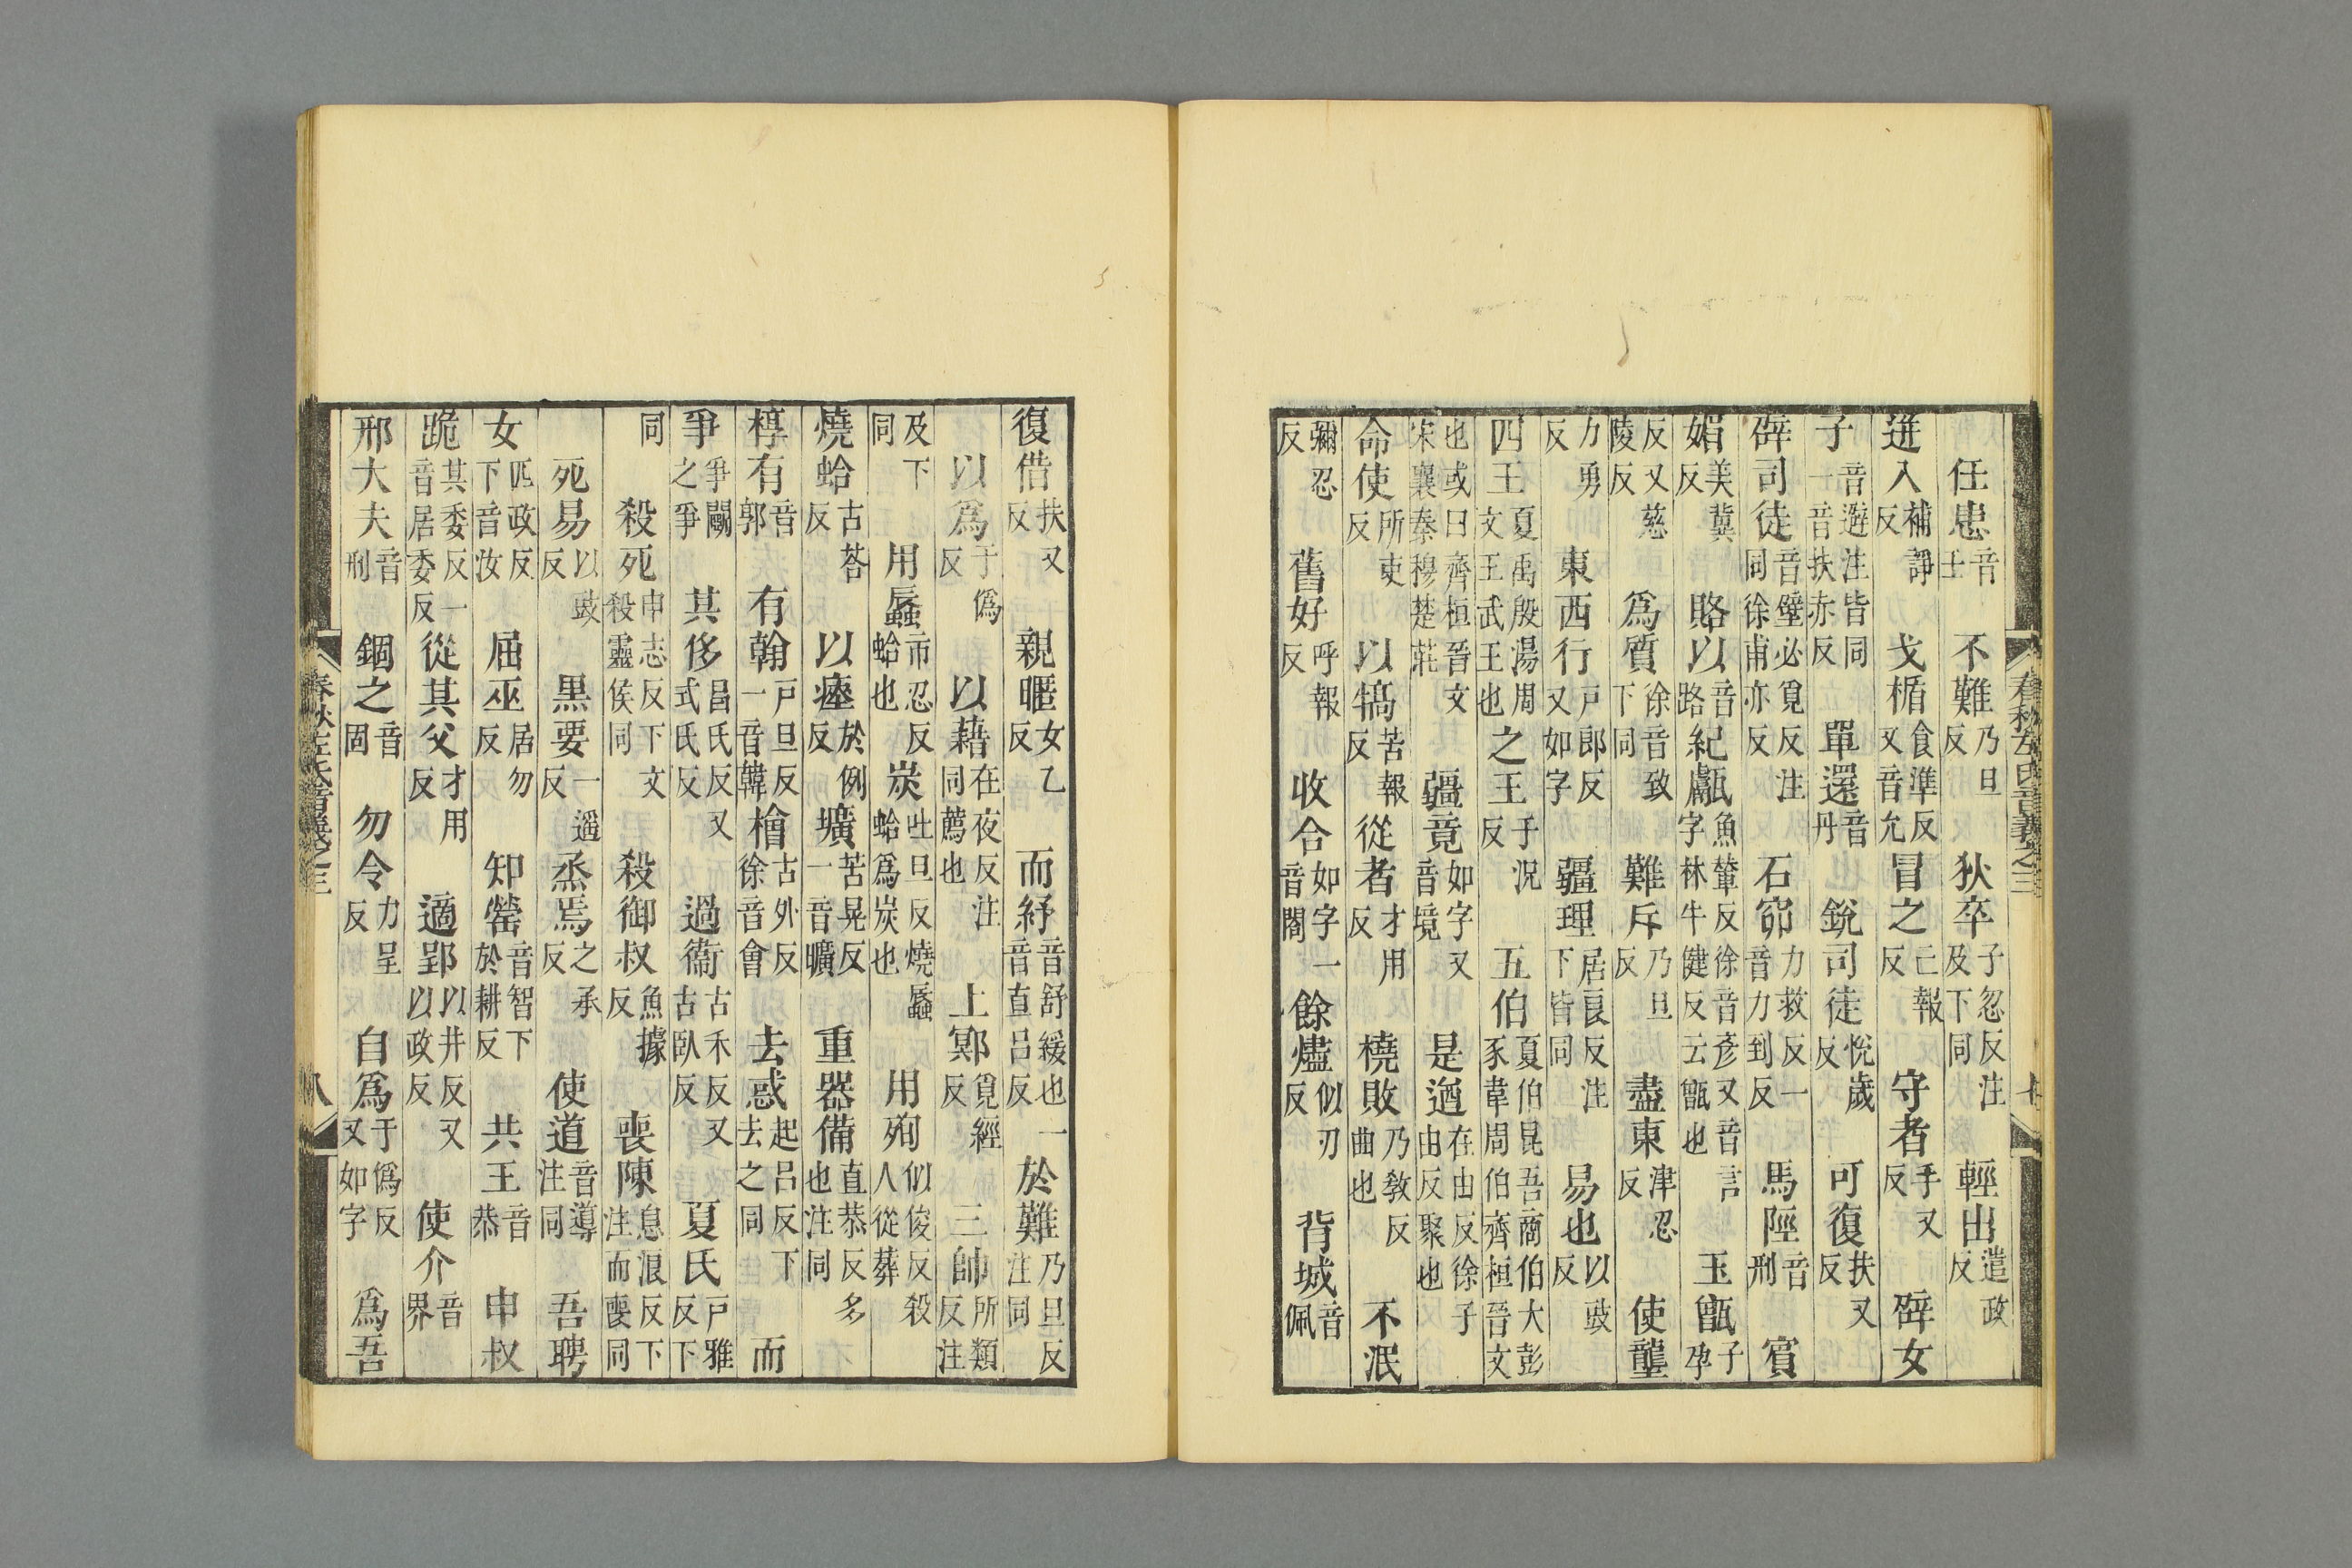 任患音士　不難乃旦反　狄卒子忽反注及下同　輕出遣政反
迸入補諍反　戈楯食準反又音允　冒之亡報反　守者手又反　辟女
子音避注皆同一音扶亦反　單還音丹　銳司徒悅歲反　可復扶又反
辟司徒音壁必覓反注同徐甫亦反　石窌力救反一音力到反　馬陘音刑　賓
媚美冀反　賂以音路　紀甗魚輦反徐音彥又音言字林牛健反云甑也　玉甑子孕
反又慈陵反　爲質徐音致下同　難斥乃旦反　盡東津忍反　使壟
力勇反　東西行戶郎反又如字　疆理居良反注下皆同　易也以豉反
四王夏禹殷湯周文王武王也　之王于況反　五伯夏伯昆吾商伯大彭豕韋周伯齊桓晉文
也或曰齊桓晉文宋襄秦穆楚莊　疆竟如字又音境　是遒在由反徐子由反聚也
命使所吏反　以犒苦報反　從者才用反　橈敗乃教反曲也　不泯
彌忍反　舊好呼報反　收合如字一音閤　餘燼似刃反　背城音佩
春秋左氏音義之三　七
復借扶又反　親暱女乙反　而紓音舒緩也一音直呂反　於難乃旦反注同
以爲于僞反　以藉在夜反注同薦也　上鄍覓經反　三帥所類反注
及下同　用蜃市忍反蛤也　炭吐旦反燒蜃蛤爲炭也　用殉似俊反殺人從葬
燒蛤古荅反　以瘞於例反　壙苦晃反一音曠　重器備直恭反多也注同
椁有音郭　有翰戶旦反一音韓　檜古外反徐音會　去惑起呂反下去之同　而
爭爭鬭之爭　其侈昌氏反又式氏反　過衞古禾反又古臥反　夏氏戶雅反下
同　殺死申志反下文殺靈侯同　殺御叔魚據反　喪陳息浪反下注而喪同
死易以豉反　黑要一遥反　烝焉之承反　使道音導注同　吾聘
女匹政反下音汝　屈巫居勿反　知罃音智下於耕反　共王音恭　申叔
跪其委反一音居委反　從其父才用反　適郢以井反又以政反　使介音界
邢大夫音刑　錮之音固　勿令力呈反　自爲于僞反又如字　爲吾
春秋左氏音義之三　八